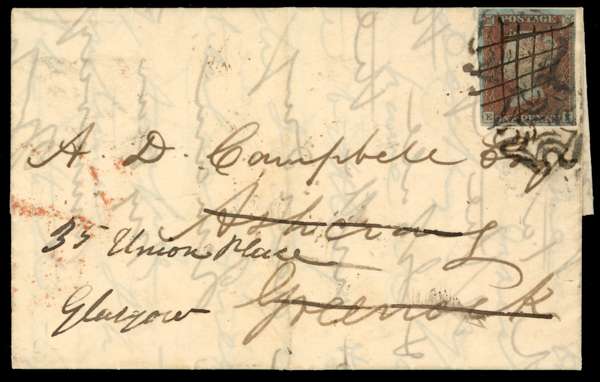 POSTAGE
ONE PENNY
A. D. Campbell Esq
Ashcraig
35 Union Place
Greenock
Glasgow